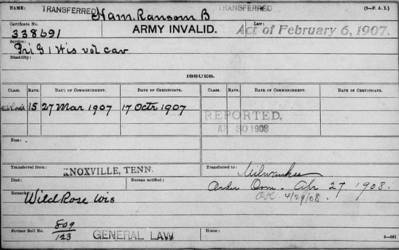 NAME: TRANSFERRED Ham, Ransom B. TRANSFERRED
Certificate No. 338691 ARMY INVALID. Law: Act of February 6, 1907.
Service: Pri G 1 Wis vol cav
Disability:
ISSUES.
CLASS. RATE. DATE OF COMMENCEMENT. DATE OF CERTIFICATE. CLASS. RATE. DATE OF COMMENCEMENT. DATE OF CERTIFICATE.
15 27 Mar 1907 17 Octr 1907
REPORTED,
AP 30 1908
Transferred from KNOXVILLE, TENN. Transferred to Milwaukee
Bureau notified: Order Com. Apr 27 1908.
Remarks: Wild Rose Wis O.K. 4/29/08.
Former Roll No. 509/123 GENERAL LAW